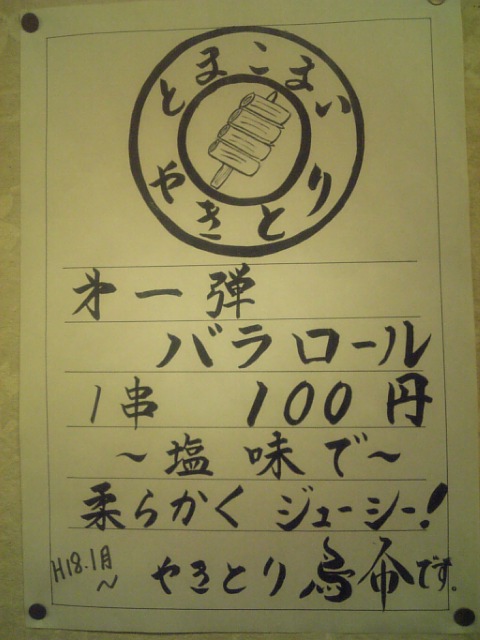 とまこまい
やきとり
才一弾
バラロール
1串 100円
～塩味で～
柔らかく ジューシー!
H18.1月～
やきとり 鳥市です。